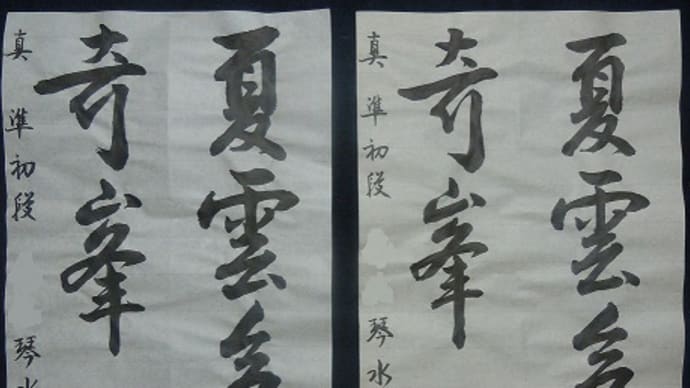 夏雲多
奇峯
真 準初段 琴水
夏雲多
奇峯
真 準初段 琴水